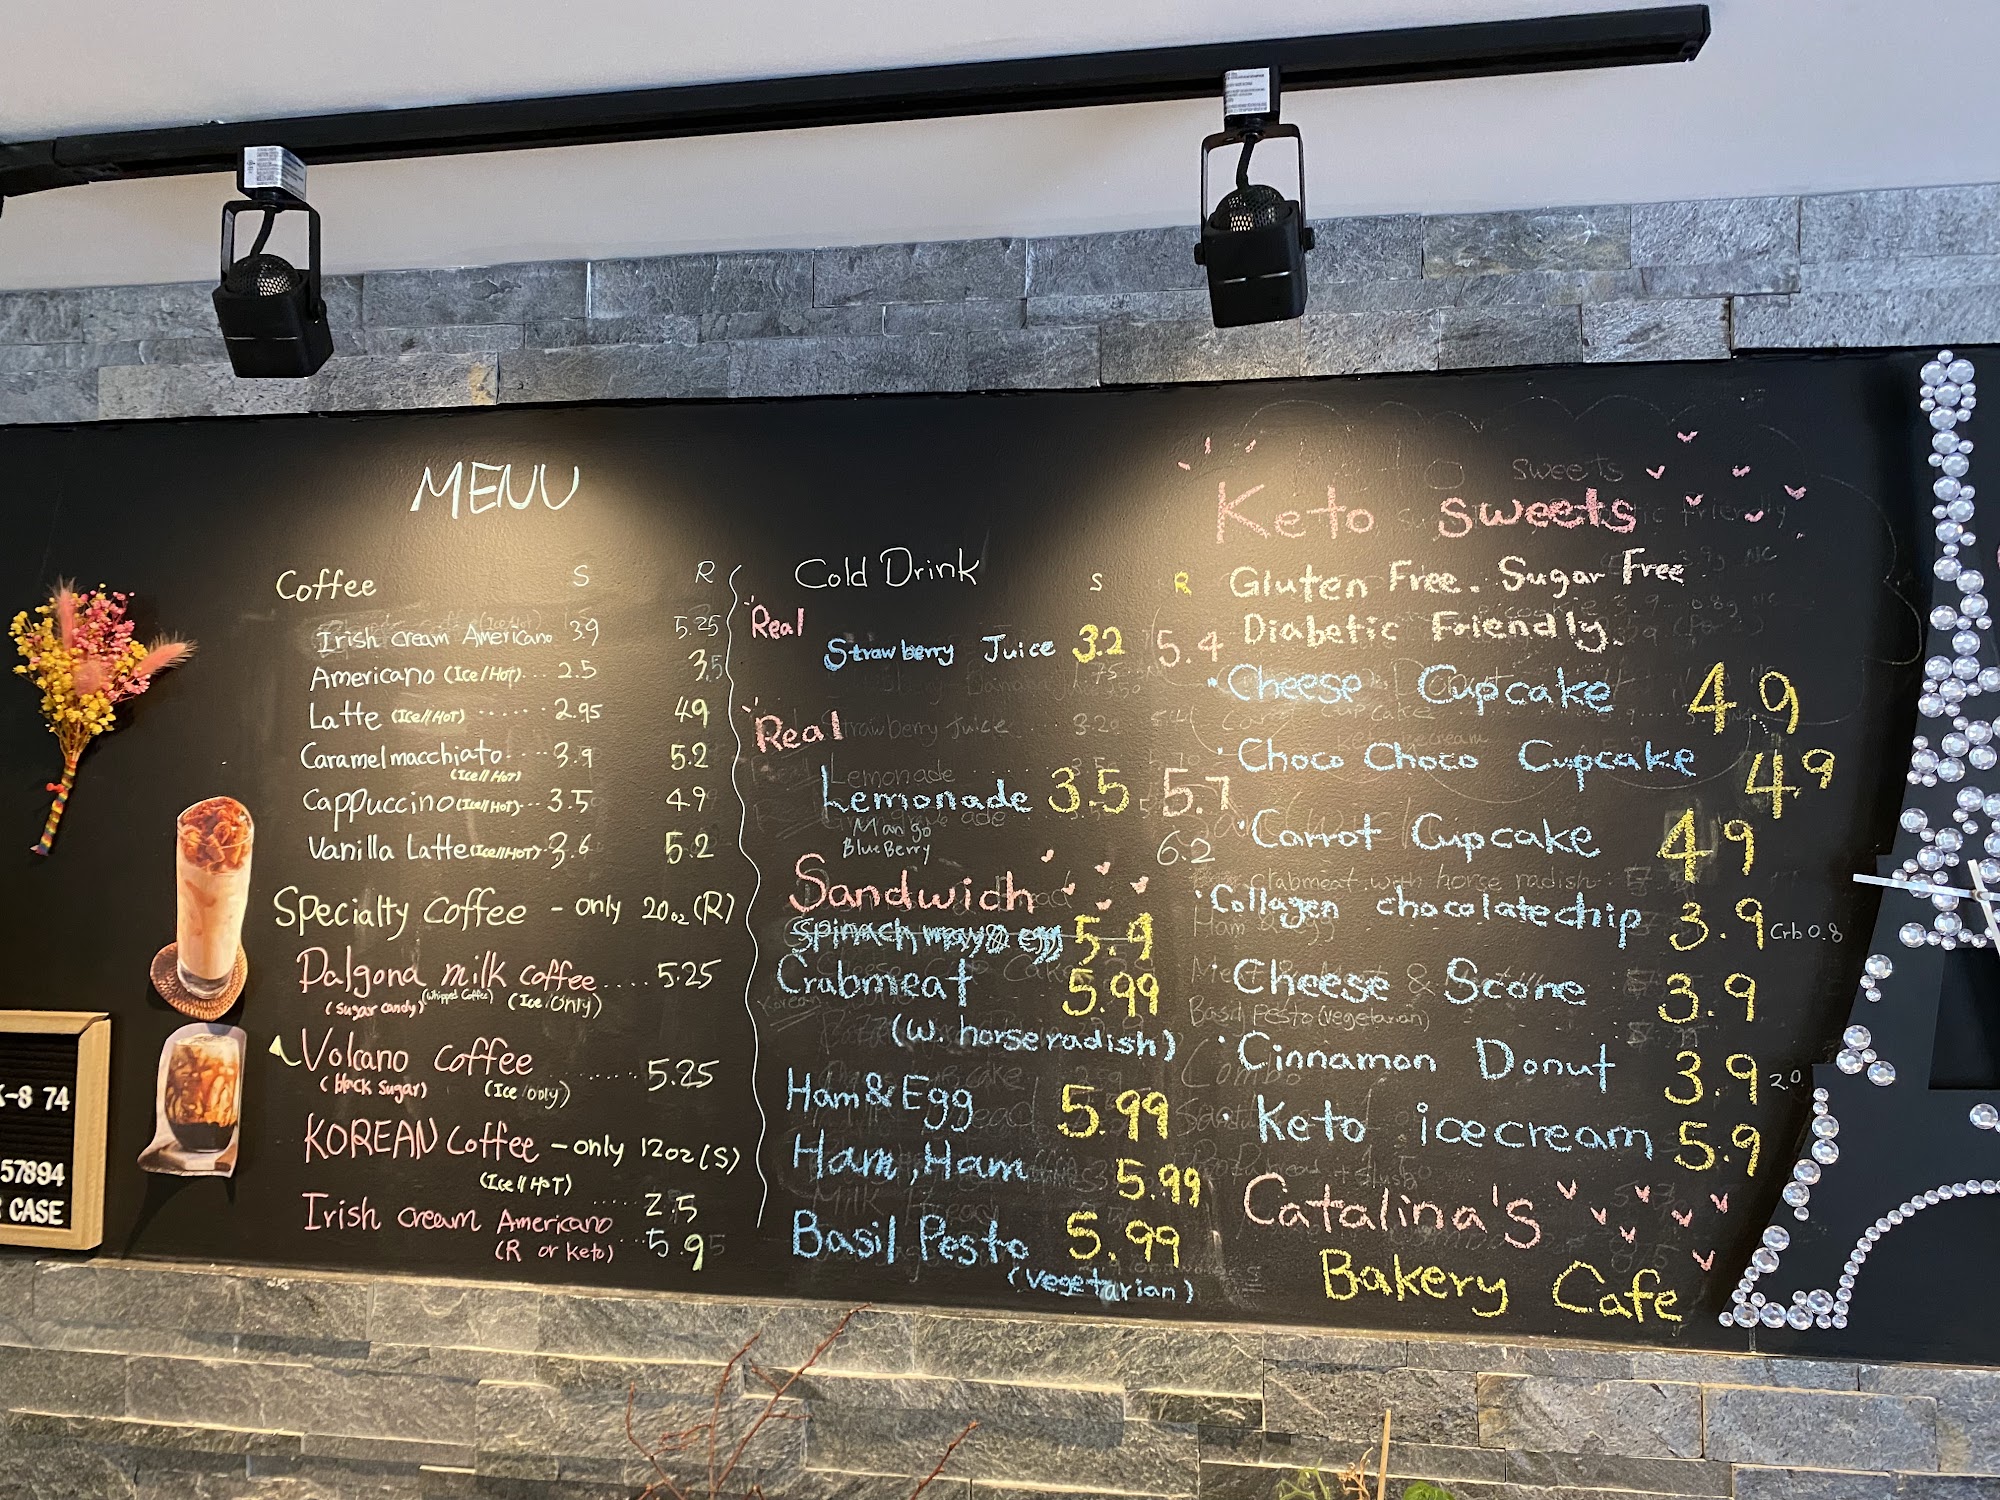 MENU
Coffee S R
Irish cream Americano 3.9 5.25
Americano (Ice/HOT)... 2.5 3.5
Latte (Ice//HOT) ...... 2.95 4.9
Caramel macchiato.... 3.9 5.2
(Ice//HOT)
Cappuccino (Ice//HOT)... 3.5 4.9
Vanilla Latte (Ice//HOT). 3.6 5.2
Specialty coffee - only 20oz (R)
Dalgona milk coffee.... 5.25
(Sugar candy) (Whipped Coffee) (Ice only)
Volcano coffee ....... 5.25
(black Sugar) (Ice only)
KOREAN Coffee - only 12oz (S)
(Ice//HOT)
Irish cream Americano ..... 2.5
(R or keto) ... 5.95
Cold Drink S R
Real
Strawberry Juice 3.2 5.4
Real
Lemonade 3.5 5.7
Mango
BlueBerry 6.2
Sandwich
Spinach, mayo egg 5.9
Crabmeat 5.99
(w. horseradish)
Ham & Egg 5.99
Ham, Ham 5.99
Basil Pesto 5.99
(vegetarian)
Keto sweets
Gluten Free. Sugar Free
Diabetic Friendly.
· Cheese Cupcake 4.9
· Choco Choco Cupcake 4.9
· Carrot Cupcake 4.9
· Collagen chocolatechip 3.9 Crb 0.8
· Cheese & Scone 3.9
· Cinnamon Donut 3.9 2.0
· Keto icecream 5.9
Catalina's
Bakery Cafe
-8 74
57894
CASE